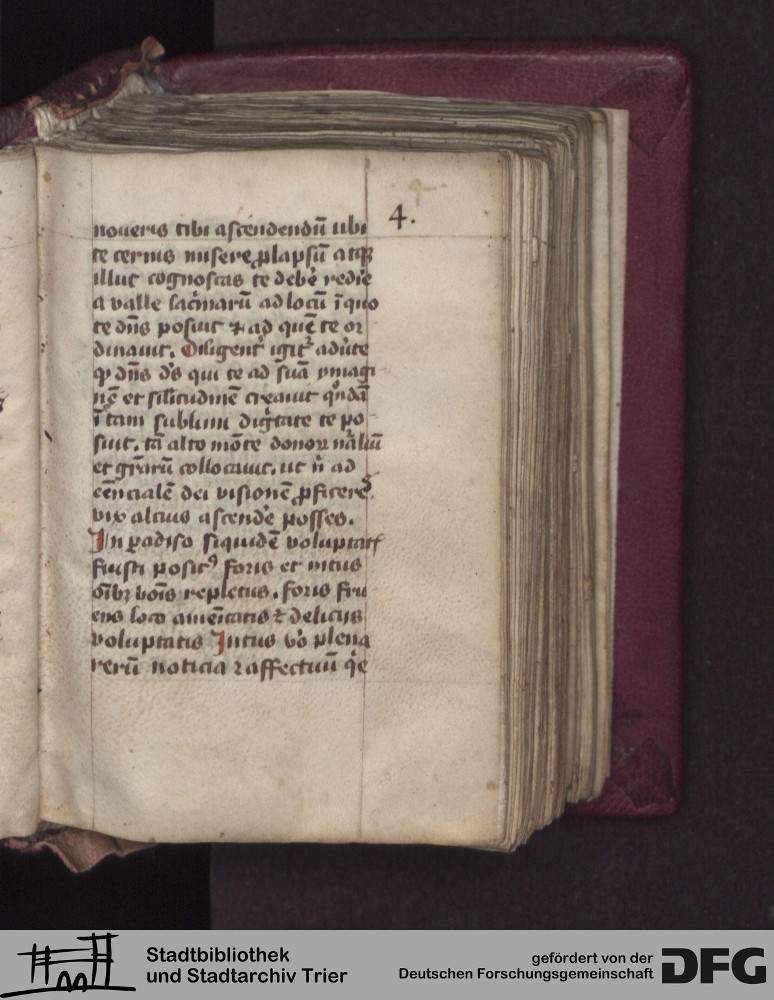 4.
noueris tibi ascendendū ubi
te cernis misere ꝓlapsū atqꝫ
illuc cognoscas te debe᷑ redi᷑e
a valle lac᷑maꝝ ad locū ī quo
te dn̄s posuit ⁊ ad quē te or
dinauit. Diligent᷑ igit᷑ adu᷑te
qꝫ dn̄s ds̄ qui te ad suā ymagi
nē et sīlitudinē creauit quōdā
ī tam sublimi dig᷑tate te po
suit. tā alto mōte donoꝝ nāliū
et gr̄aꝝ collocauit. ut n̄ ad
eēncialē dei visionē ꝓficeres.
vix alcius ascende᷑ posses.
In ꝑadiso siquidē voluptatꝭ
fuisti positꝰ foris et intus
oīb᷑ boīs repletus. foris fru
ens loco amēitatis ⁊ delicijs
voluptatis Intus vo᷑ plena
rerū noticia ⁊ affectuū
Stadtbibliothek
und Stadtarchiv Trier
gefördert von der
Deutschen Forschungsgemeinschaft
DFG